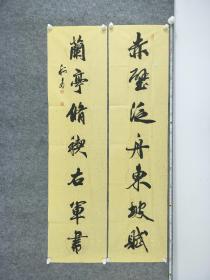 赤壁泛舟東坡賦
蘭亭脩禊右軍書